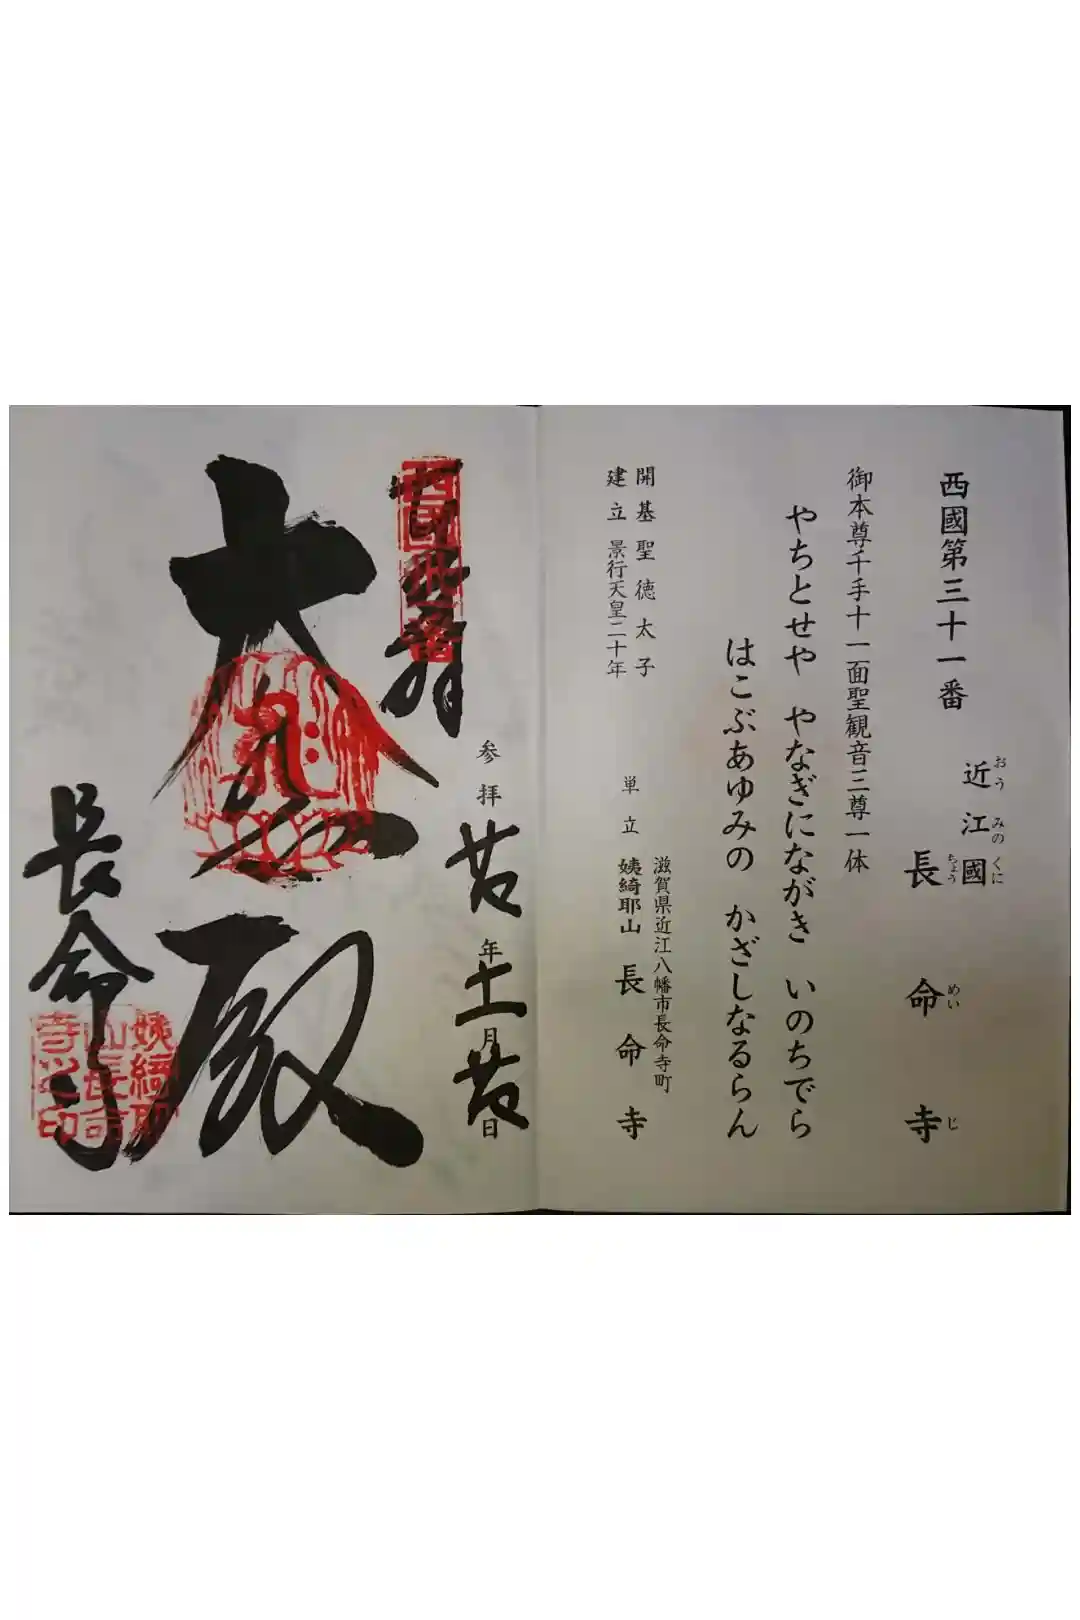 西國第三十一番
近江國
おうみのくに
長命寺
ちょうめいじ
御本尊千手十一面聖観音三尊一体
やちとせや やなぎにながき いのちでら
はこぶあゆみの かざしなるらん
開基聖徳太子
建立景行天皇二十年
滋賀県近江八幡市長命寺町
単立 姨綺耶山 長命寺
参拝 年 月 日
大悲殿
長命寺
姨綺耶
山長命
寺之印